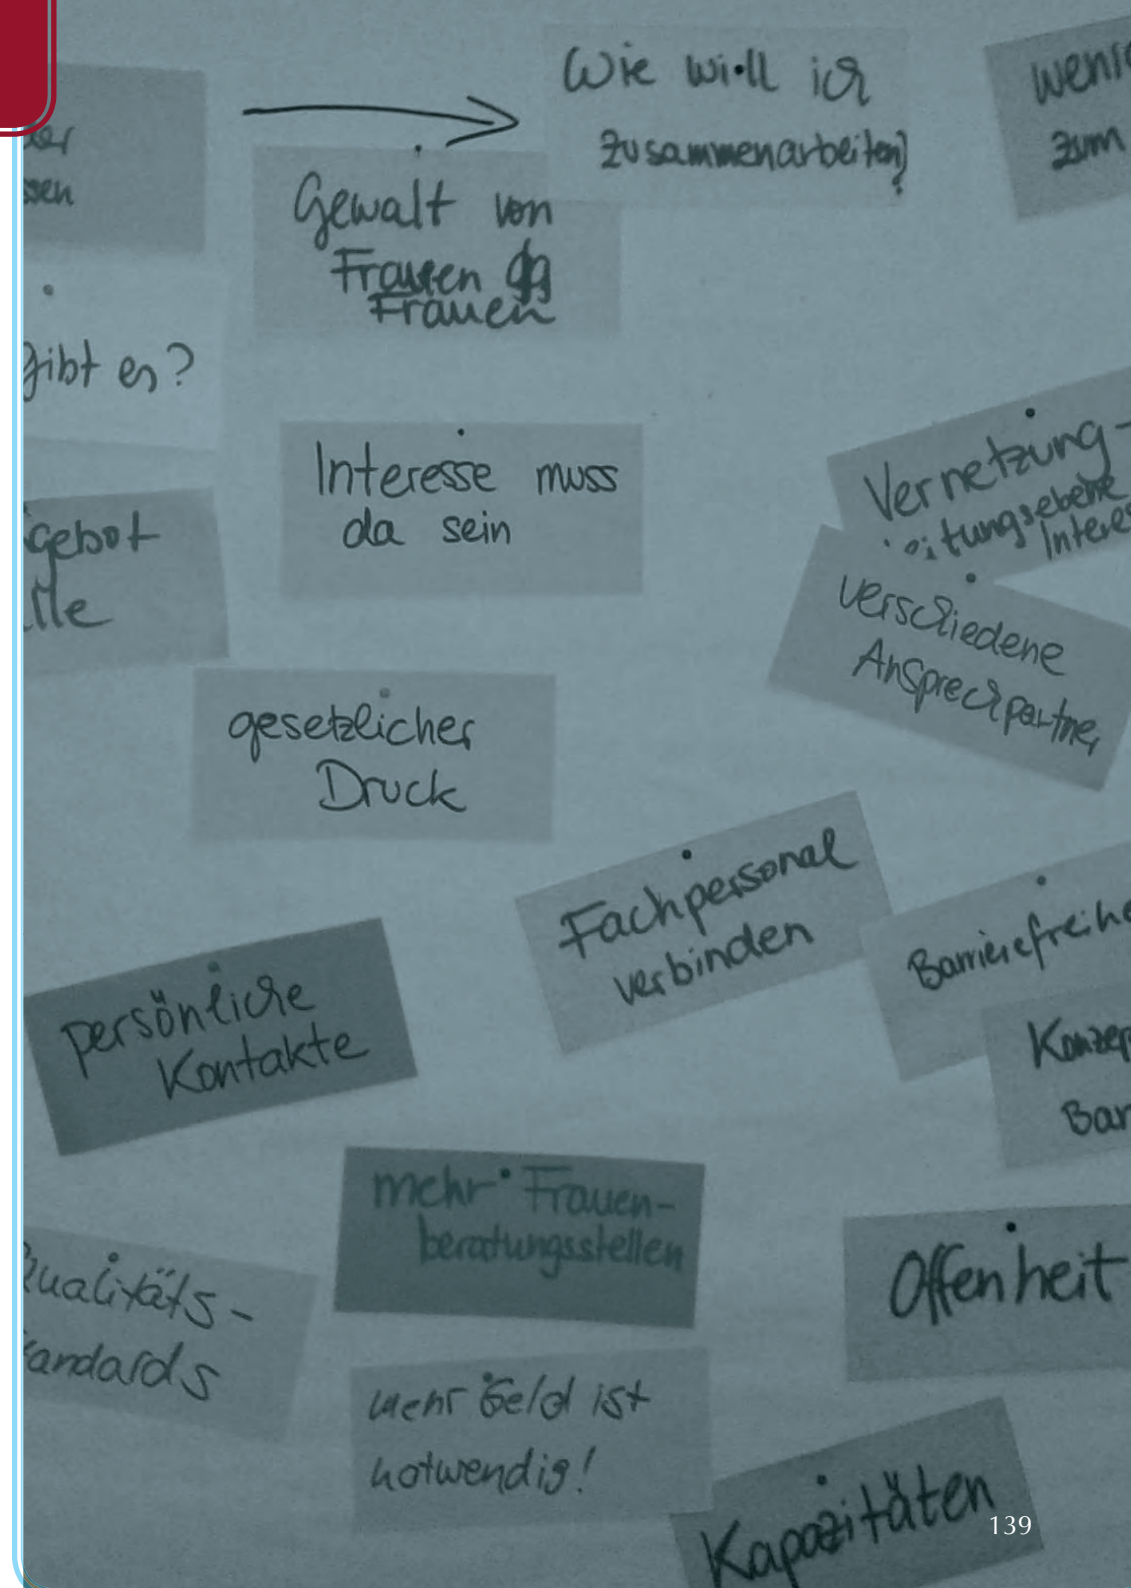 Wie will ich
zusammenarbeiten?
weni
zum
ssen
Gewalt von
Frauen gg
Frauen
gibt es?
Interesse muss
da sein
Vernetzung-
itungsebene
Intere
gebot
lle
verschiedene
Ansprechpartner
gesetzlicher
Druck
Fachpersonal
verbinden
Barrierefreihe
persönliche
Kontakte
Konzep
Bar
mehr Frauen-
beratungsstellen
Offenheit
Qualitäts-
tandards
mehr Geld ist
notwendig!
Kapazitäten
139